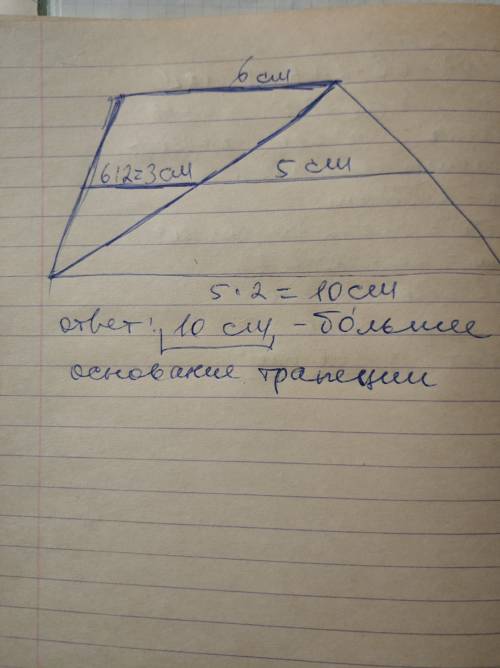 6 см
6:2=3см
5 см
5·2=10см
ответ: 10 см - большее
основание трапеции